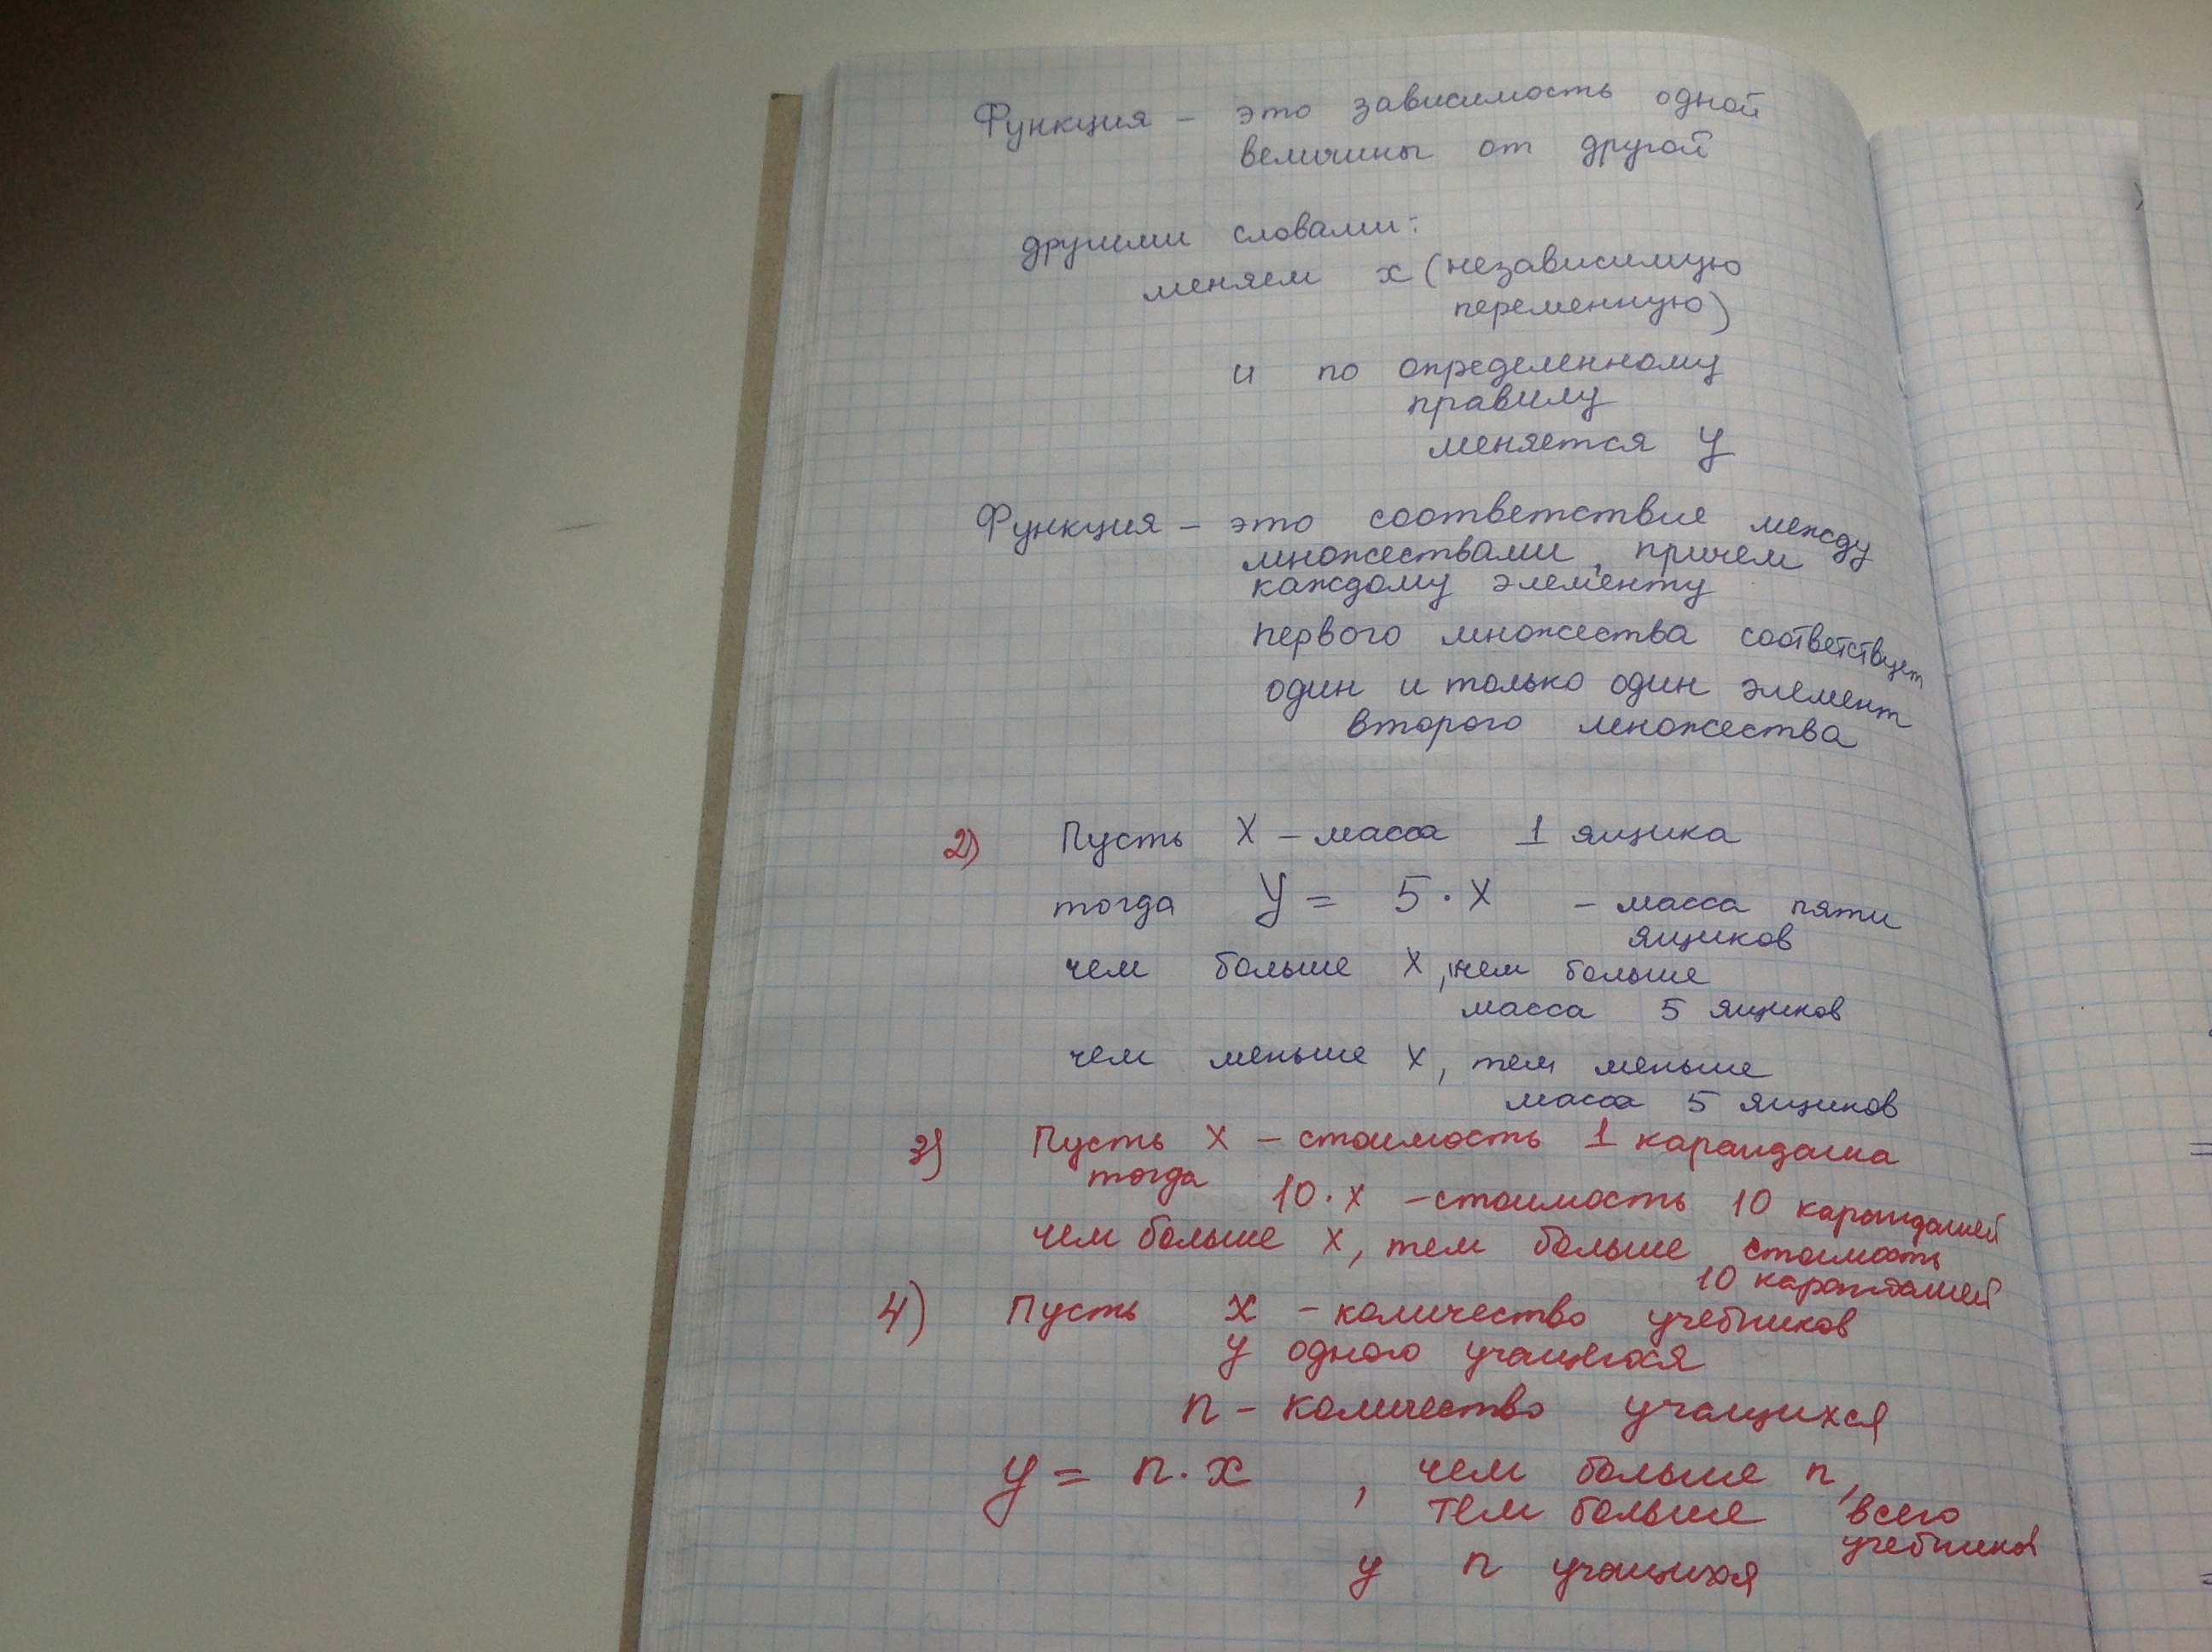 Функция – это зависимость одной
величины от другой
другими словами:
меняем x (независимую
переменную)
и по определенному
правилу
меняется y
Функция – это соответствие между
множествами, причем
каждому элементу
первого множества соответствует
один и только один элемент
второго множества
2) Пусть x – масса 1 ящика
тогда y = 5 · x – масса пяти
ящиков
чем больше x, тем больше
масса 5 ящиков
чем меньше x, тем меньше
масса 5 ящиков
3) Пусть x – стоимость 1 карандаша
тогда 10 · x – стоимость 10 карандашей
чем больше x, тем больше стоимость
10 карандашей
4) Пусть x – количество учебников
у одного учащегося
n – количество учащихся
y = n · x , чем больше n,
тем больше всего
учебников
у n учащихся